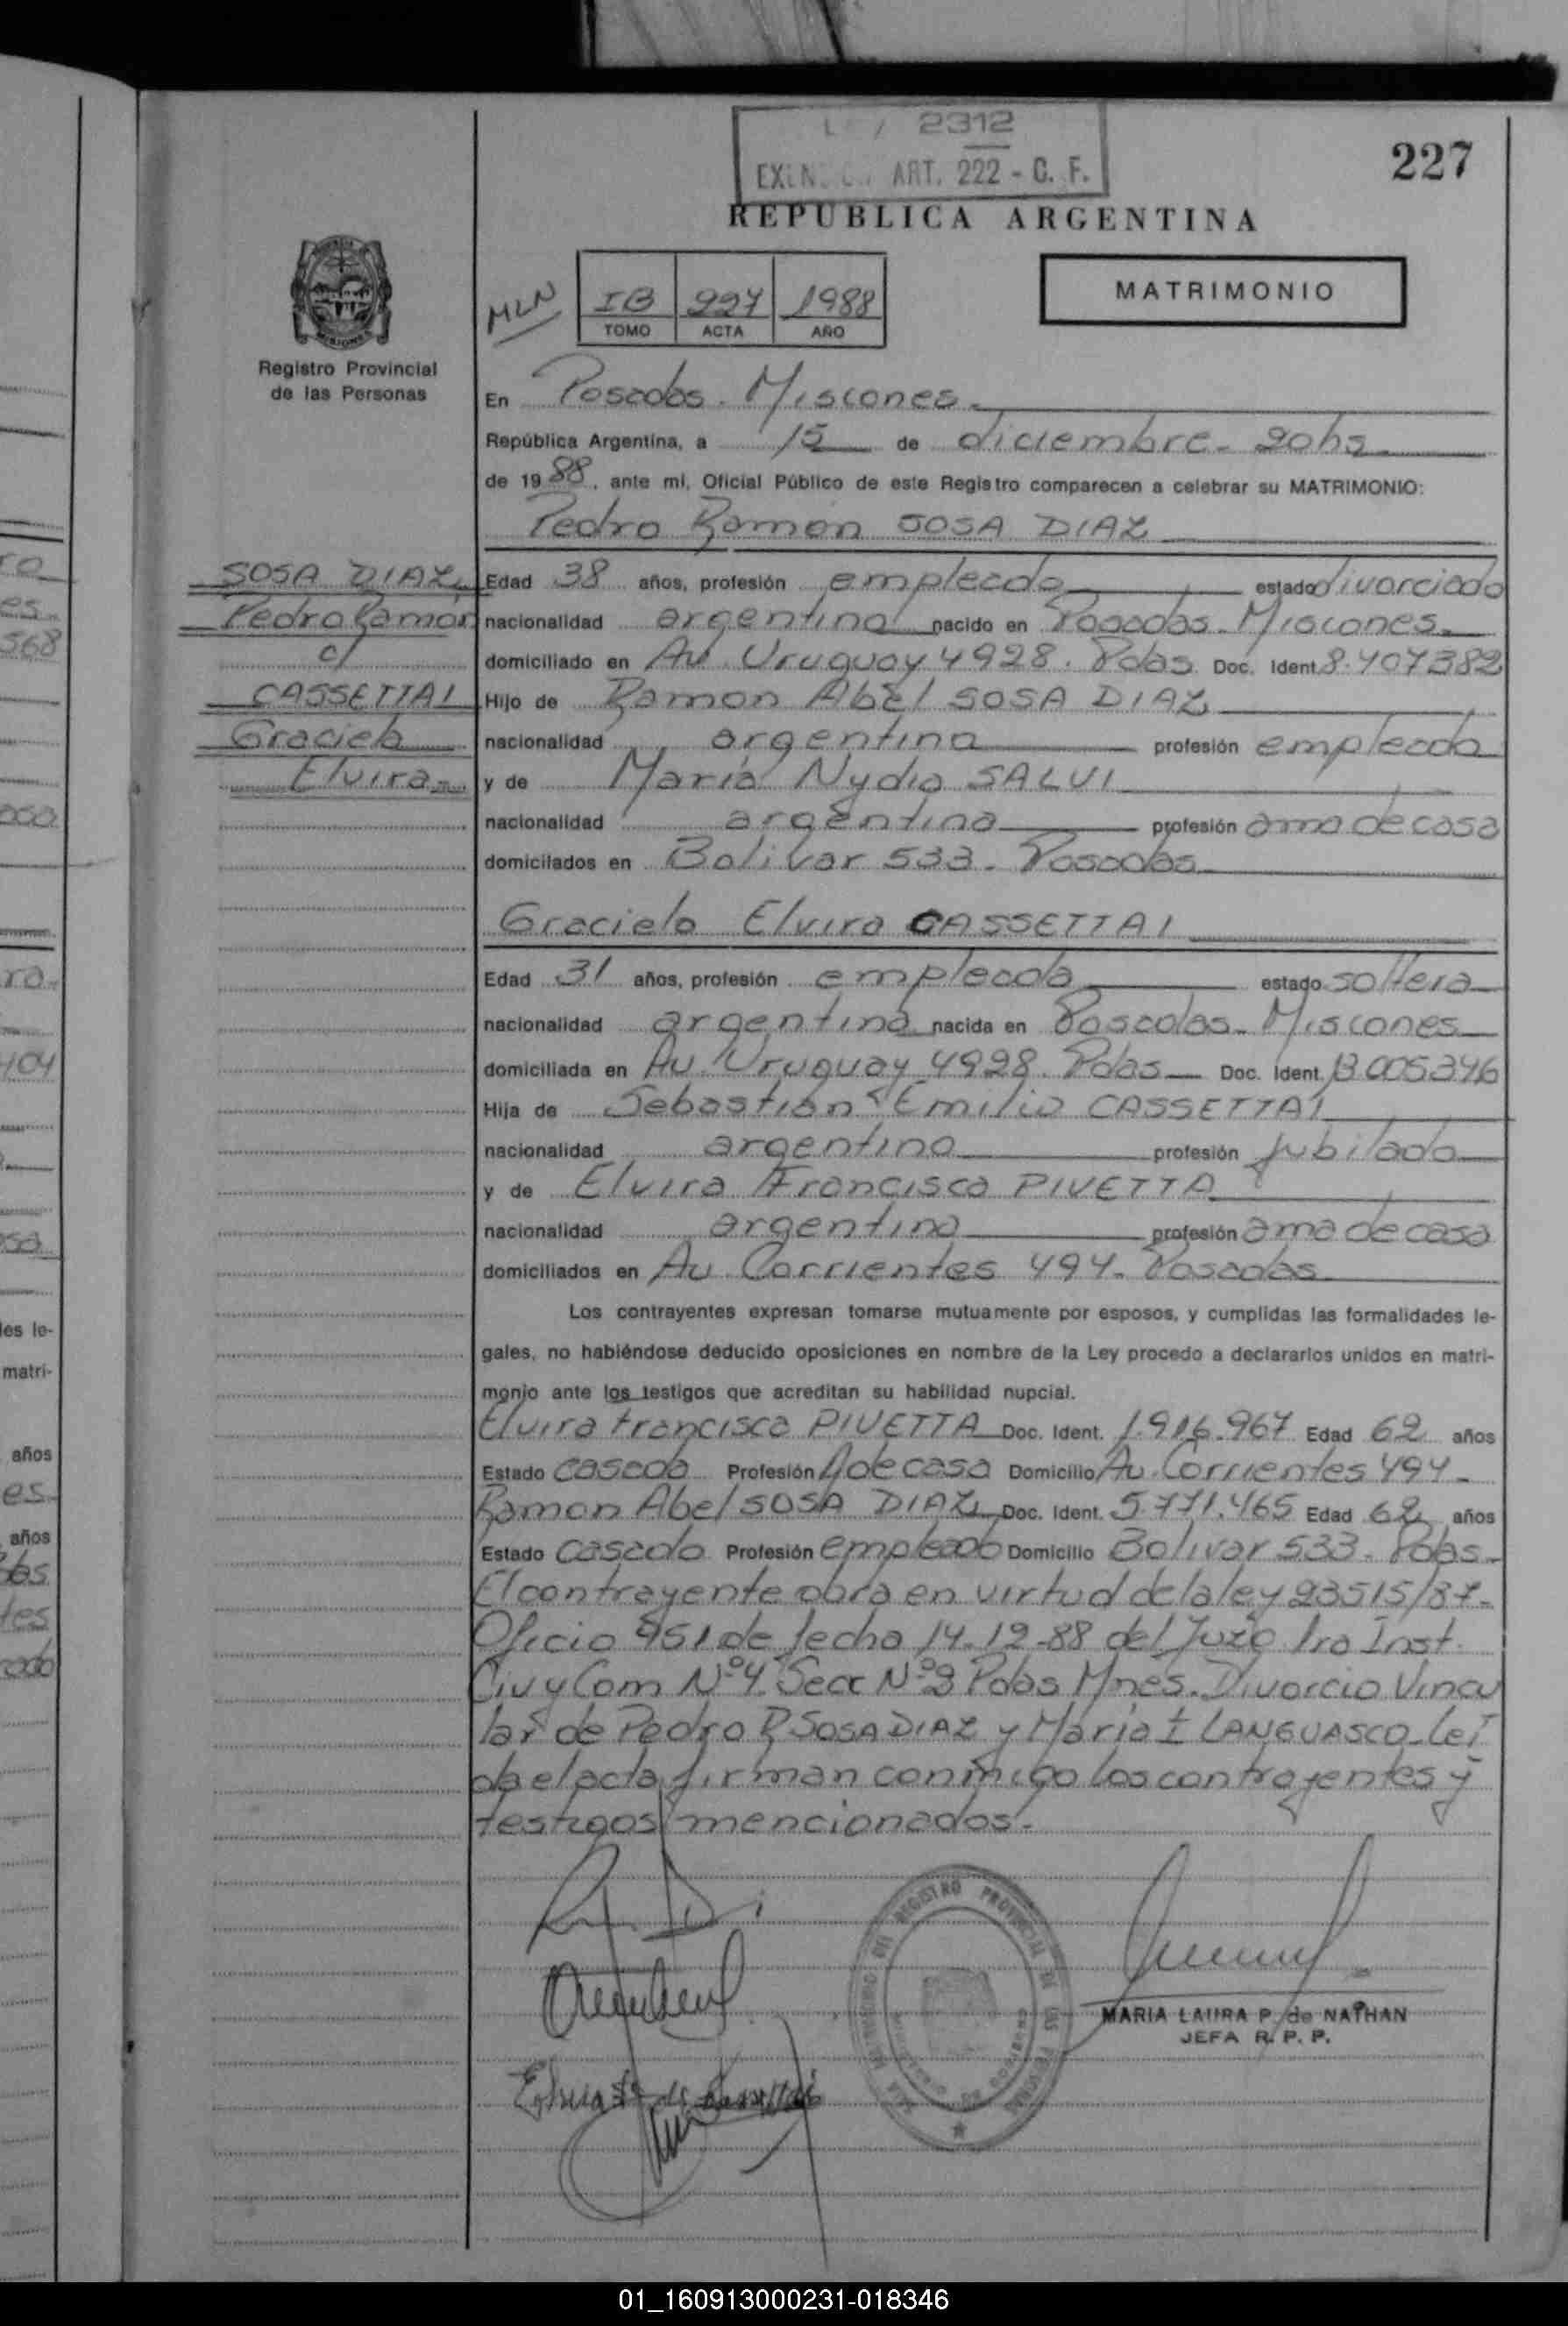 2312
ART. 222 - C. F.
227
REPUBLICA ARGENTINA
MATRIMONIO
MLN
IB 227 1988
TOMO ACTA AÑO
Registro Provincial
de las Personas
En Posadas - Misiones -
República Argentina, a 15 de diciembre - 20hs
de 1988, ante mí, Oficial Público de este Registro comparecen a celebrar su MATRIMONIO:
Pedro Ramon SOSA DIAZ
SOSA DIAZ
Pedro Ramón
c/
CASSETTAI
Graciela
Elvira
Edad 38 años, profesión empleado estado divorciado
nacionalidad argentina nacido en Posadas - Misiones -
domiciliado en Av. Uruguay 4928. Pdas Doc. Ident. 8.407382
Hijo de Ramon Abel SOSA DIAZ
nacionalidad argentina profesión empleado
y de María Nydia SALVI
nacionalidad argentina profesión ama de casa
domicilados en Bolivar 533 - Posadas
Graciela Elvira CASSETTAI
Edad 31 años, profesión empleada estado soltera
nacionalidad argentina nacida en Posadas - Misiones
domiciliada en Av. Uruguay 4928. Pdas Doc. Ident. 13.005346
Hija de Sebastián Emilio CASSETTAI
nacionalidad argentina profesión jubilado
y de Elvira Francisca PIVETTA
nacionalidad argentina profesión ama de casa
domiciliados en Av Corrientes 494 - Posadas
Los contrayentes expresan tomarse mutuamente por esposos, y cumplidas las formalidades le-
gales, no habiéndose deducido oposiciones en nombre de la Ley procedo a declararlos unidos en matri-
monio ante los testigos que acreditan su habilidad nupcial.
Elvira Francisca PIVETTA Doc. Ident. 1.916.967 Edad 62 años
Estado casada Profesión A de casa Domicilio Av. Corrientes 494 -
Ramon Abel SOSA DIAZ Doc. Ident. 5.771.465 Edad 62 años
Estado casado Profesión empleado Domicilio Bolivar 533 - Pdas -
El contrayente obra en virtud de la ley 23515/87 -
Oficio 951 de fecha 14-12-88 del Juzg 1ra Inst.
Civ y Com Nº 4 Secr Nº 3 Pdas Mnes. Divorcio Vincu
lar de Pedro R SOSA DIAZ y María I LANGUASCO - Leí
da el acta firman conmigo los contrayentes y
testigos mencionados -
REGISTRO PROVINCIAL DE LAS
MARIA LAURA P. de NATHAN
JEFA R. P. P.
01_160913000231-018346